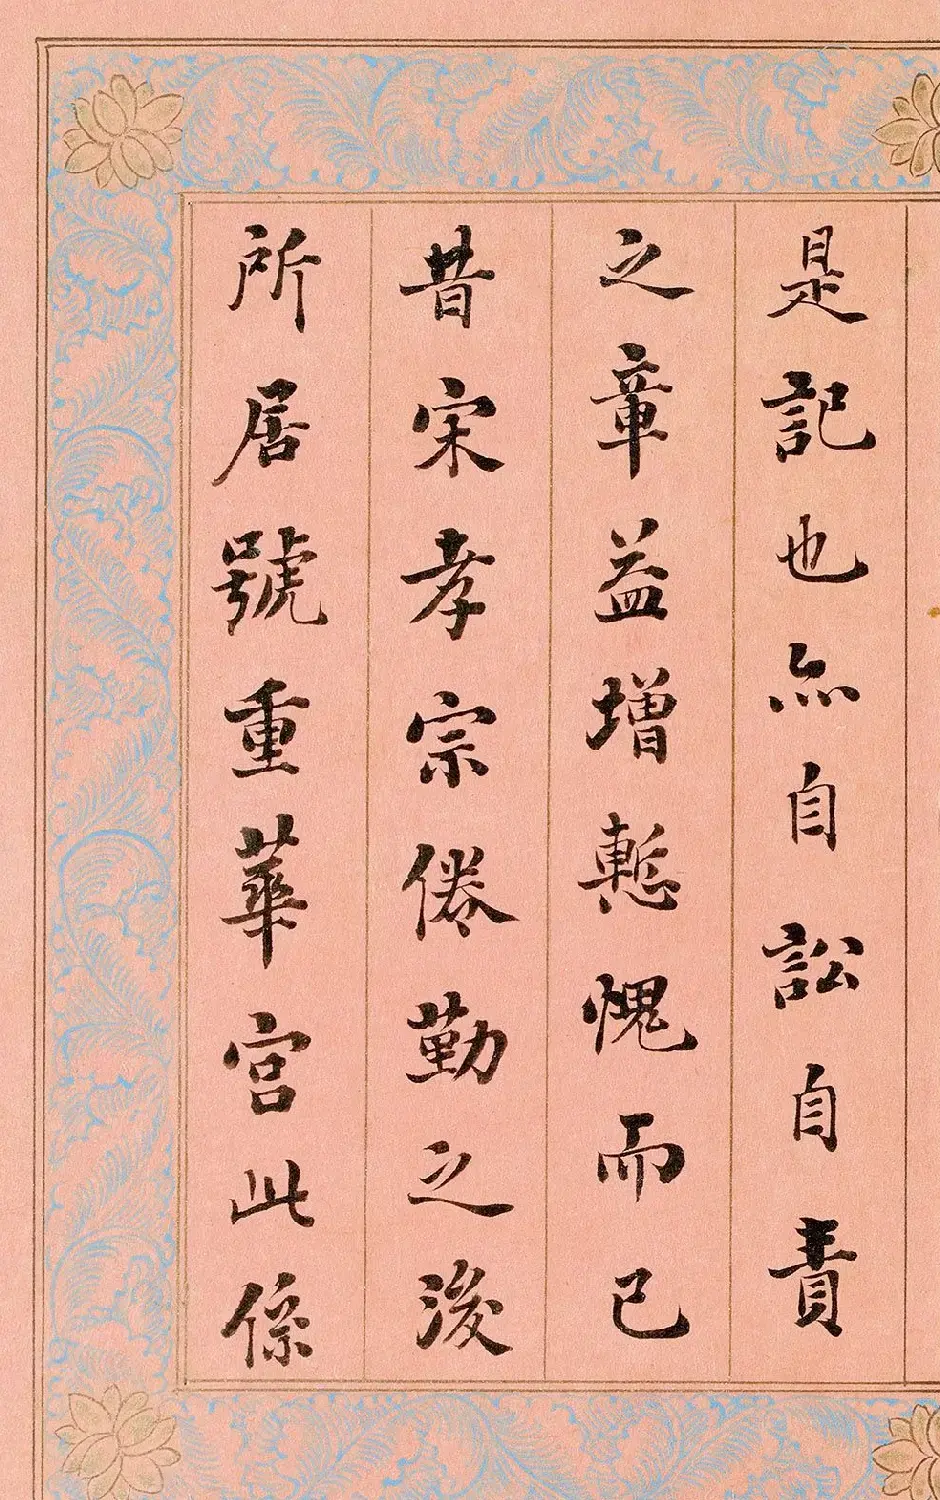 是記也亦自訟自責
之章益增慙愧而已
昔宋孝宗倦勤之後
所居號重華宮此係